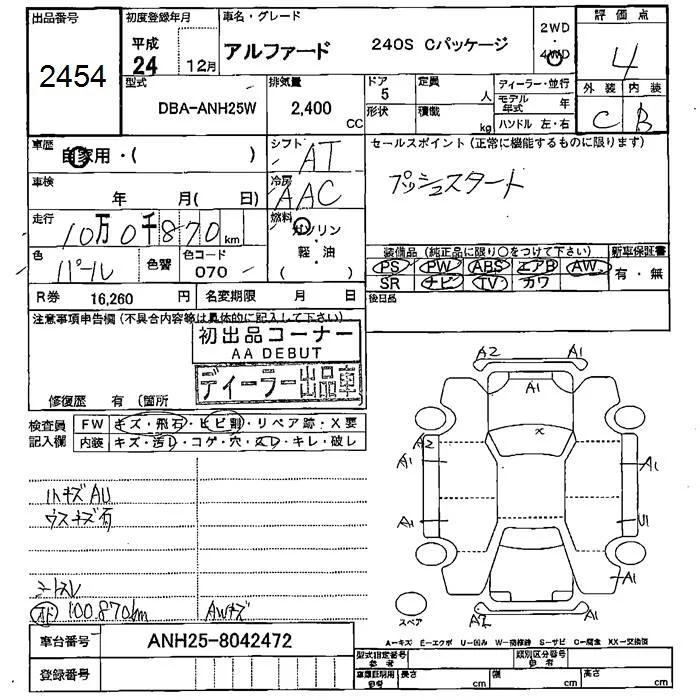 出品番号
2454
初度登録年月
平成
24 12月
車名・グレード
アルファード 240S Cパッケージ
2WD
・
4WD
評価点
4
外装 内装
C B
型式
DBA-ANH25W
排気量
2,400
CC
ドア
5
形状
定員
人
積載
kg
ディーラー・並行
モデル年式 年
ハンドル 左・右
車歴
自家用・( )
シフト
AT
セールスポイント (正常に機能するものに限ります)
プッシュスタート
車検
年 月( 日)
冷房
AAC
走行
10万0千870km
燃料
ガソリン
・
軽・油
( )
色
パール
色替
色コード
070
装備品 (純正品に限り○をつけて下さい)
PS PW ABS エアB AW
SR ナビ TV カワ
新車保証書
有・無
R券 16,260 円
名変期限 月 日
後日品
注意事項申告欄 (不具合内容等は具体的に記入して下さい)
初出品コーナー
AA DEBUT
ディーラー出品車
修復歴 有 (箇所
検査員
記入欄
FW キズ・飛石・ヒビ割・リペア跡・X要
内装 キズ・汚レ・コゲ・穴・スレ・キレ・破レ
小キズAU
ウスキズ有
シートスレ
オド 100,870km
AWキズ
A2 A1
A1
X
A2
A1 A1
A1 U1
A1
A2
スペア
A-キズ E-エクボ U-凹み W-補修跡 S-サビ C-腐食 XX-交換済
車台番号
ANH25-8042472
登録番号
型式指定番号
参考
類別区分番号
参考
車庫証明用
参考
長さ cm
幅 cm
高さ cm